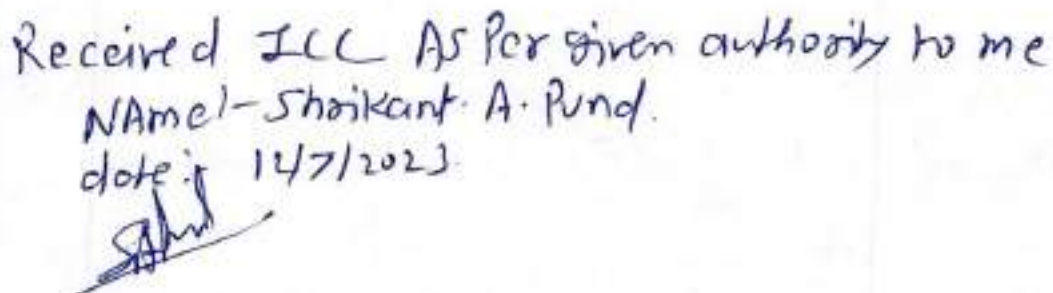 Received ICC As Per given authority to me
NAme:- Shrikant. A. Pund.
date:- 14/7/2023.